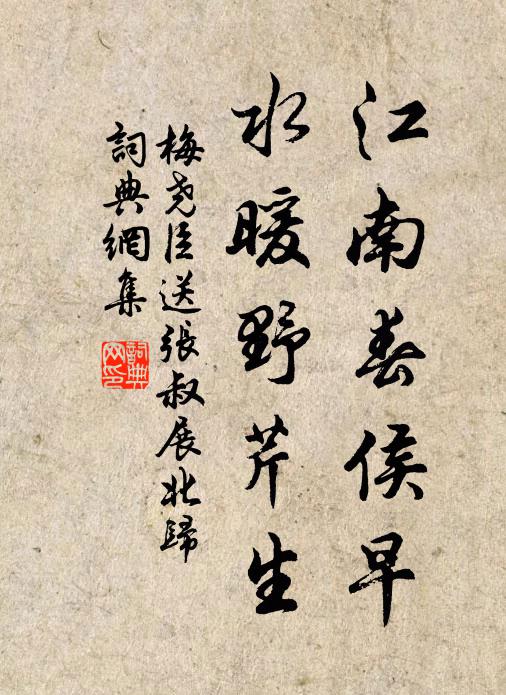 江南春侯早
水暖野芹生
梅尧臣送張叔展北歸
詞典網集
詞典
网印